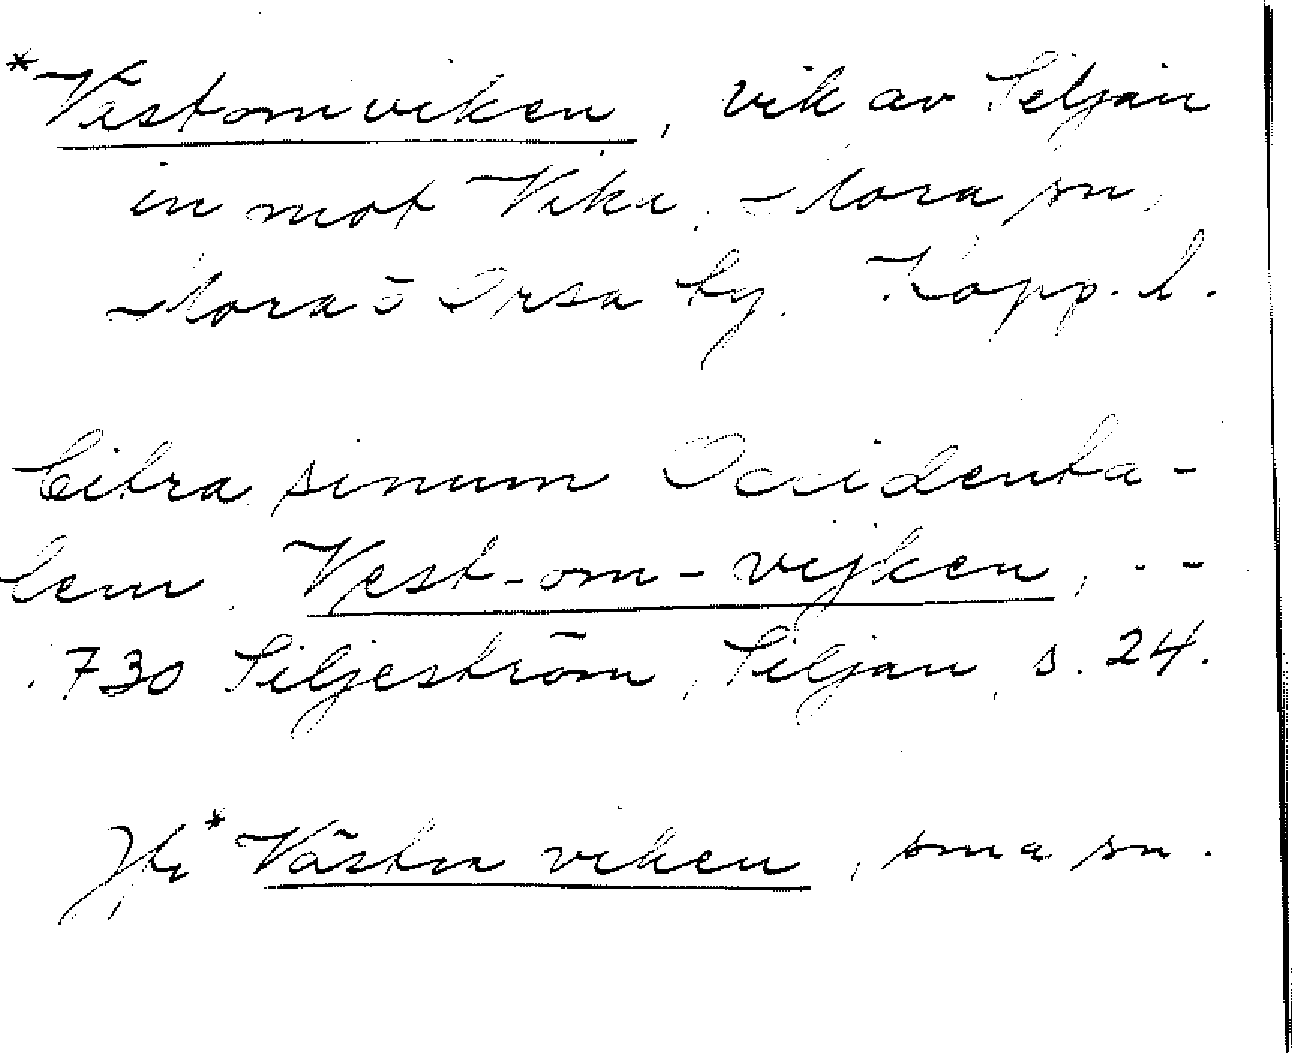 *Västomviken, vik av Siljan
in mot Vika, Mora sn,
Mora o Orsa tg. Kopp. l.
Citra sinum Occidenta-
lem, Vest-om-vijken, --
.730 Siljeström, Siljan, s. 24.
Jfr *Västra viken, sma sn.